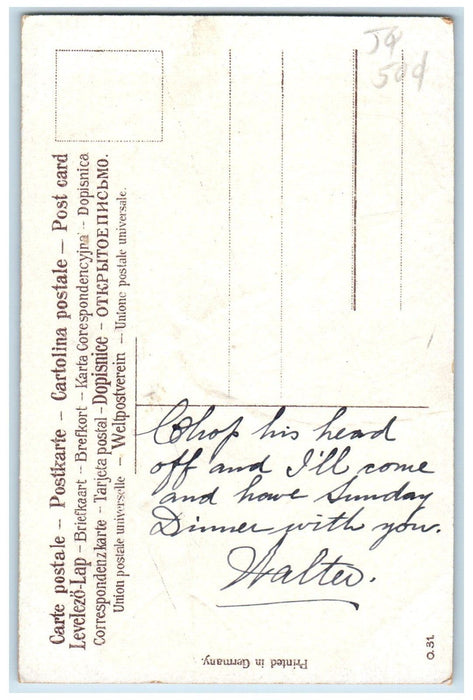 J¢
50¢
Carte postale – Postkarte – Cartolina postale – Post card
Levelező-Lap – Briefkaart – Brefkort – Karta Corespondencyjna – Dopisnica
Correspondenzkarte – Tarjeta postal – Dopisnice – ОТКРЫТОЕ ПИСЬМО.
Union postale universelle – Weltpostverein – Unione postale universale.
Chop his head
off and I'll come
and have Sunday
Dinner with you.
Walter.
Printed in Germany.
O.31.